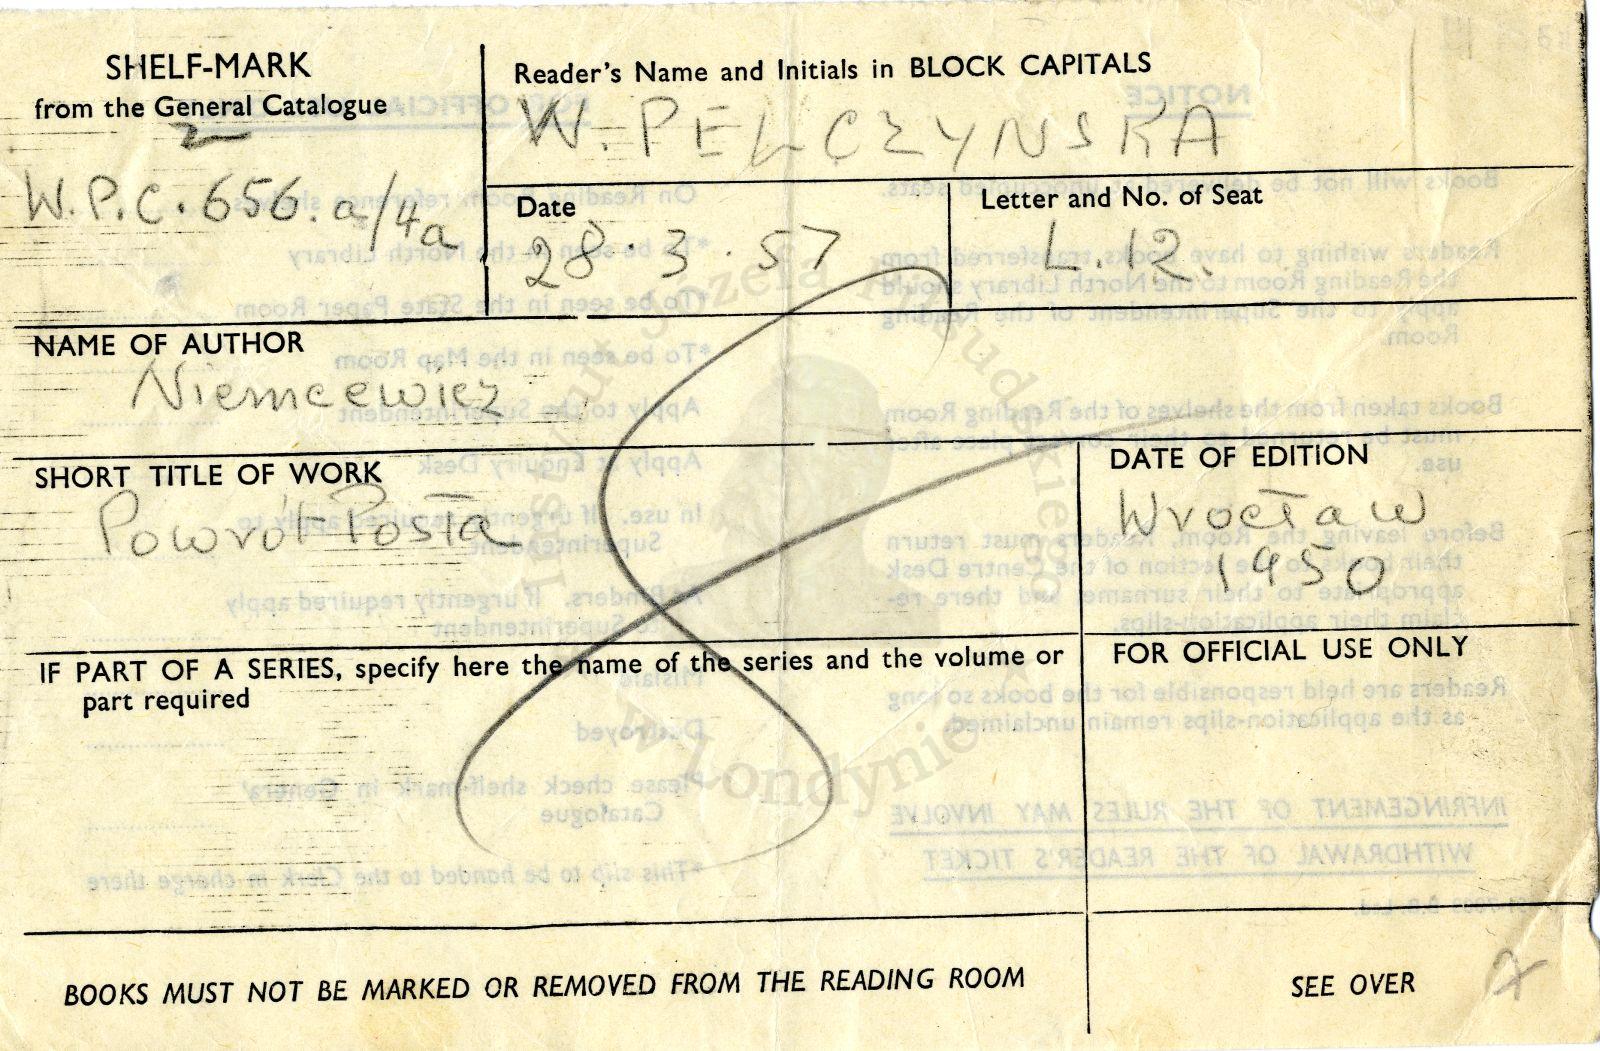 SHELF-MARK
from the General Catalogue
W.P.C. 656. a/4a
Reader's Name and Initials in BLOCK CAPITALS
W. PEŁCZYNSKA
Date
28.3.57
Letter and No. of Seat
L.12.
NAME OF AUTHOR
Niemcewicz
SHORT TITLE OF WORK
Powrót Posła
DATE OF EDITION
Wrocław
1950
IF PART OF A SERIES, specify here the name of the series and the volume or
part required
FOR OFFICIAL USE ONLY
BOOKS MUST NOT BE MARKED OR REMOVED FROM THE READING ROOM
SEE OVER
Instytut Józefa Piłsudskiego
w Londynie